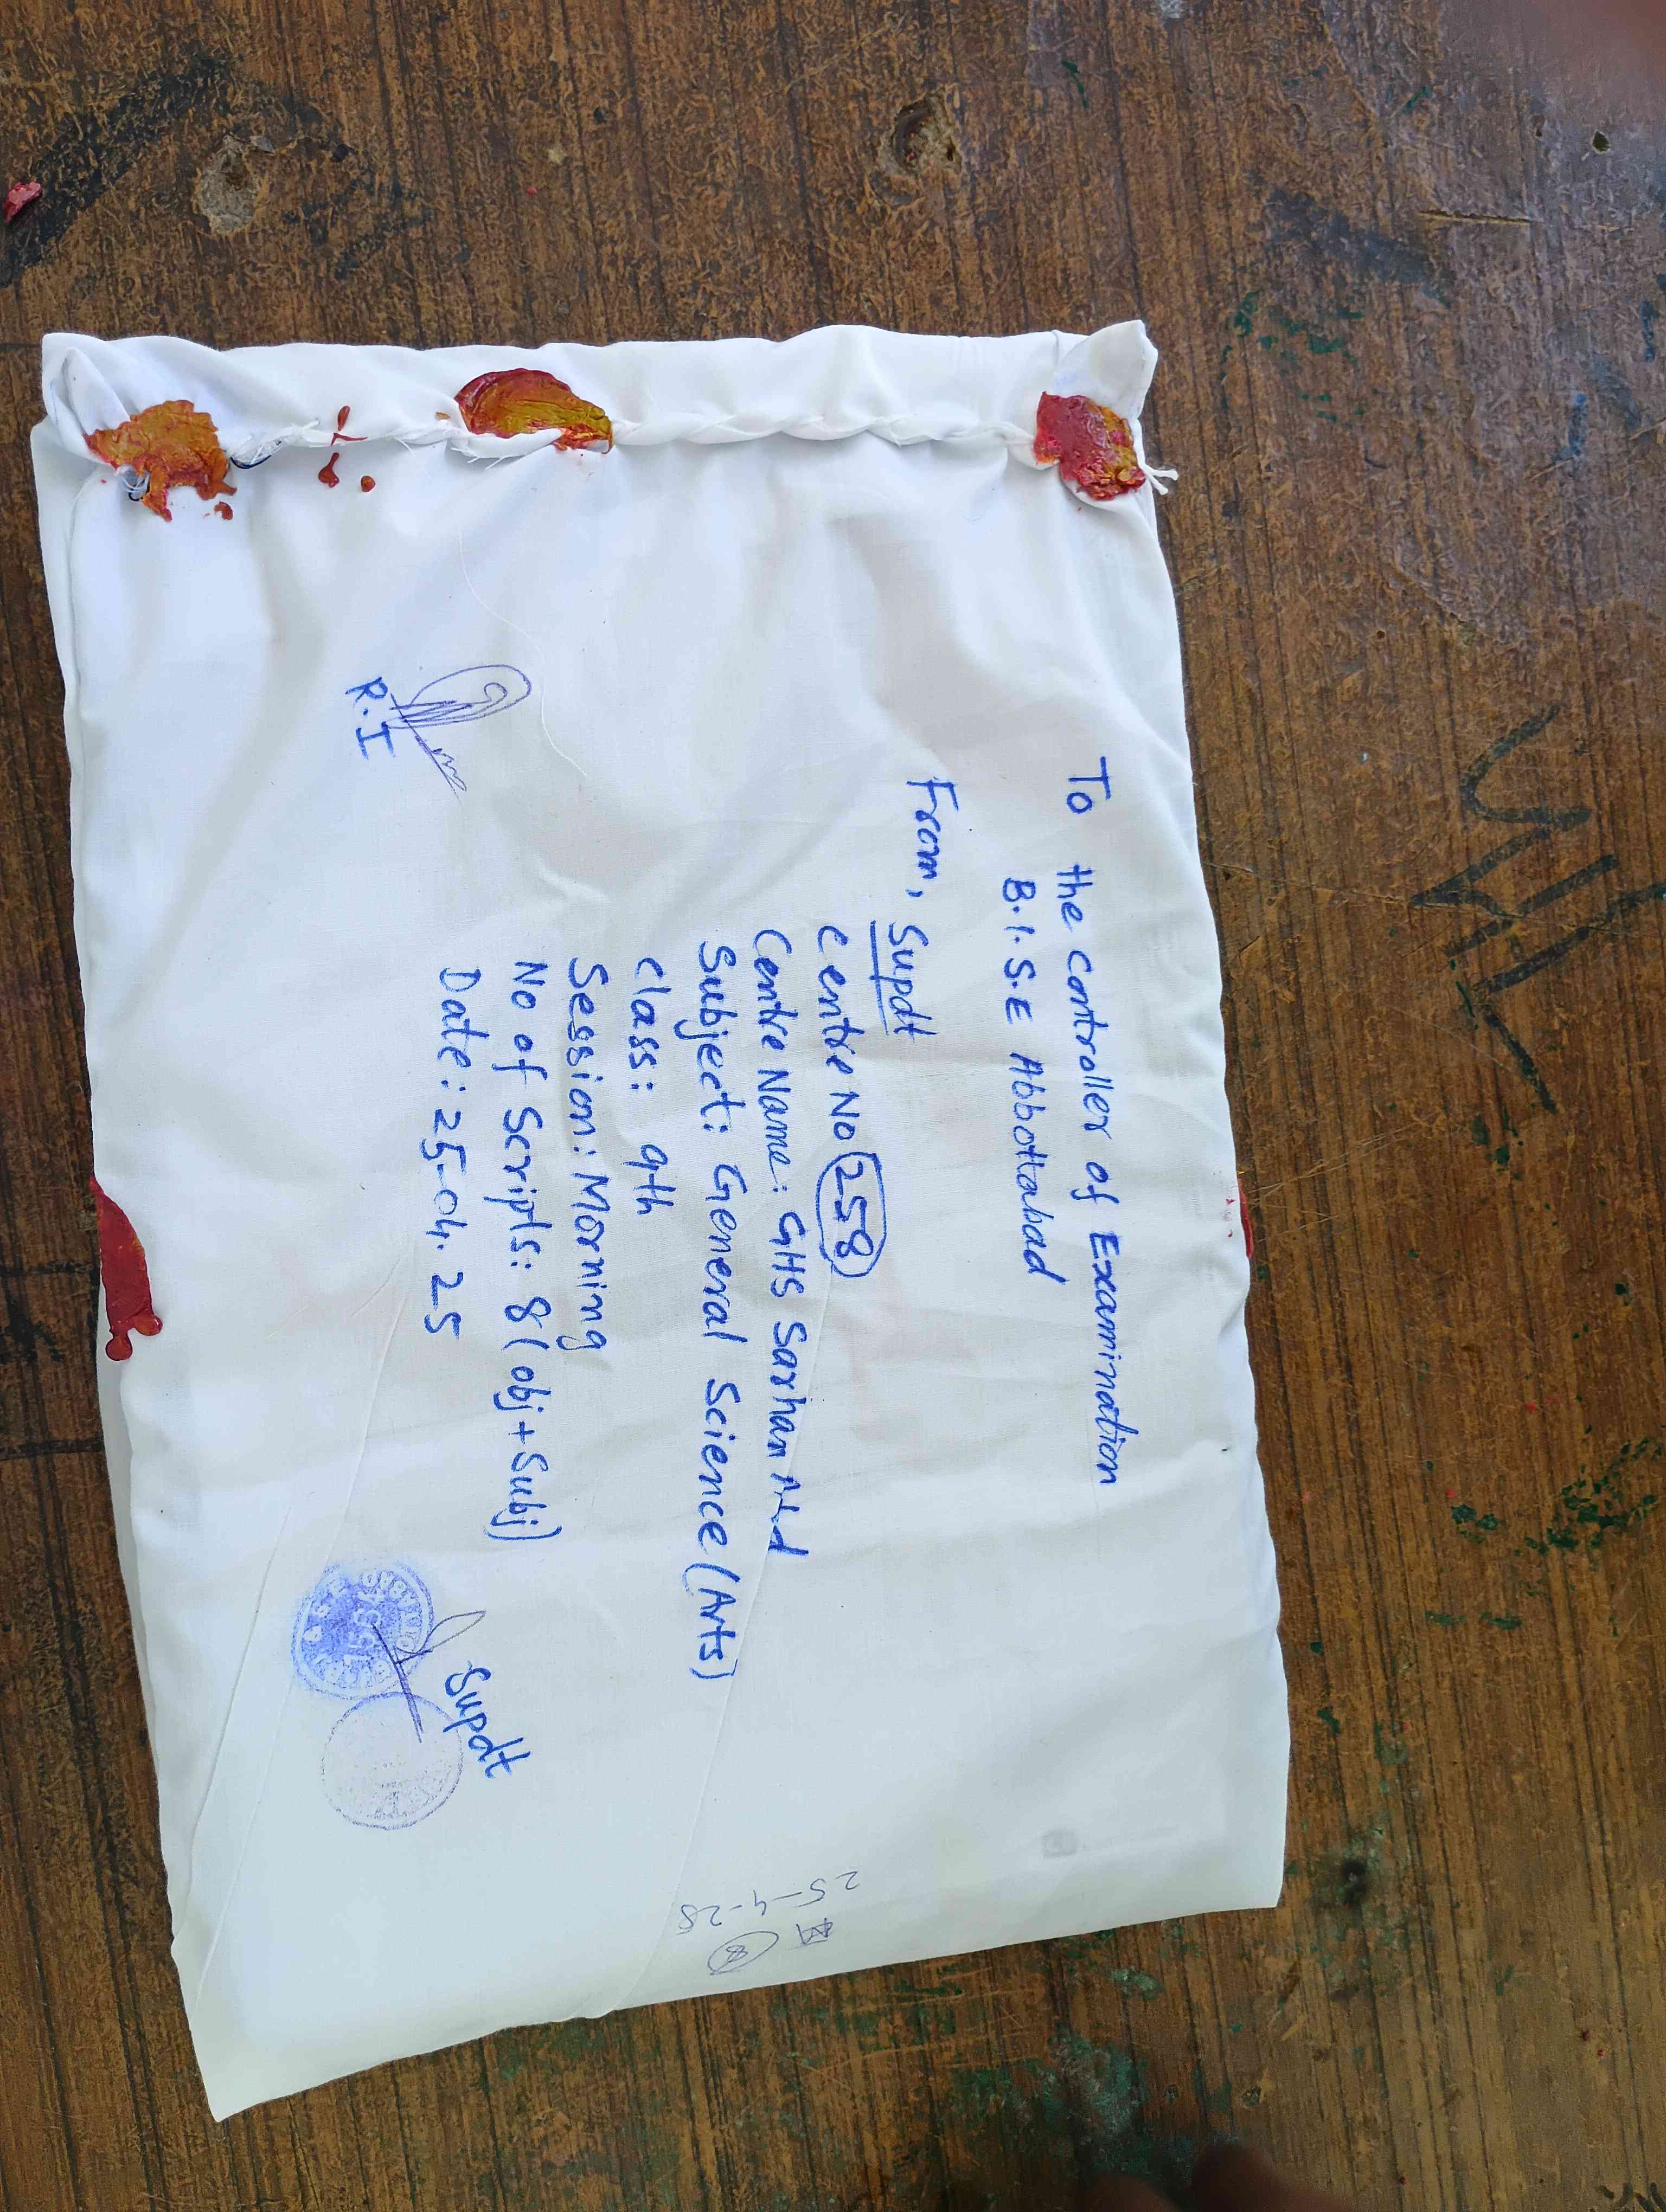 To the controller of Examination
B.I.S.E Abbottabad
From, Supdt
Centre No 258
Centre Name: GHS Sarhan
Subject: General Science (Arts)
class: 9th
Session: Morning
No of Scripts: 8 (obj + Subj)
Date: 25-04.25
R.I
Supdt
25-4-25